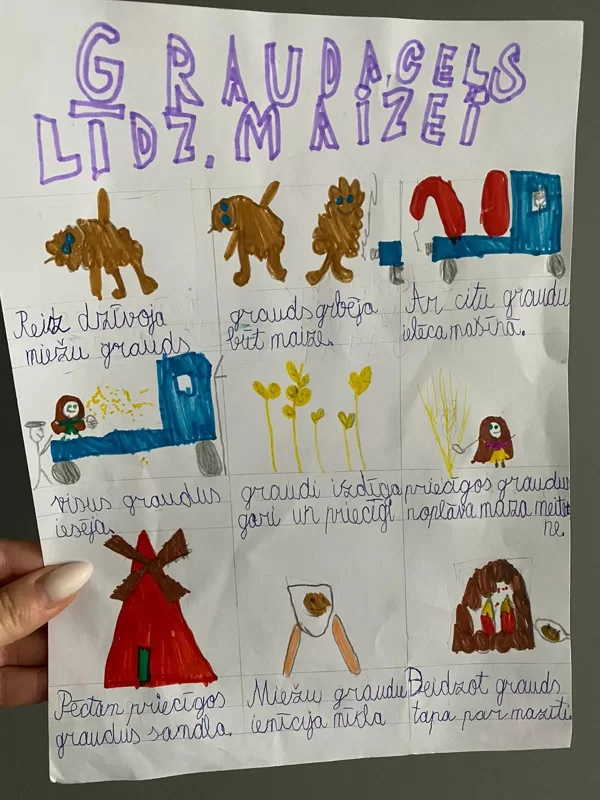 GRAUDA CEĻŠ
LĪDZ MAIZEI
Reiz dzīvoja
miežu grauds
grauds gribēja
būt maize.
Ar citu graudu
ielēca mašīnā.
visus graudus
iesēja.
graudi izdīga
gari un priecīgi
priecīgos graudus
nopļāva maza meite
ne
Pēctam priecīgos
graudus samala.
Miežu graudu
iemīcija mīkla
Beidzot grauds
tapa par maizīti